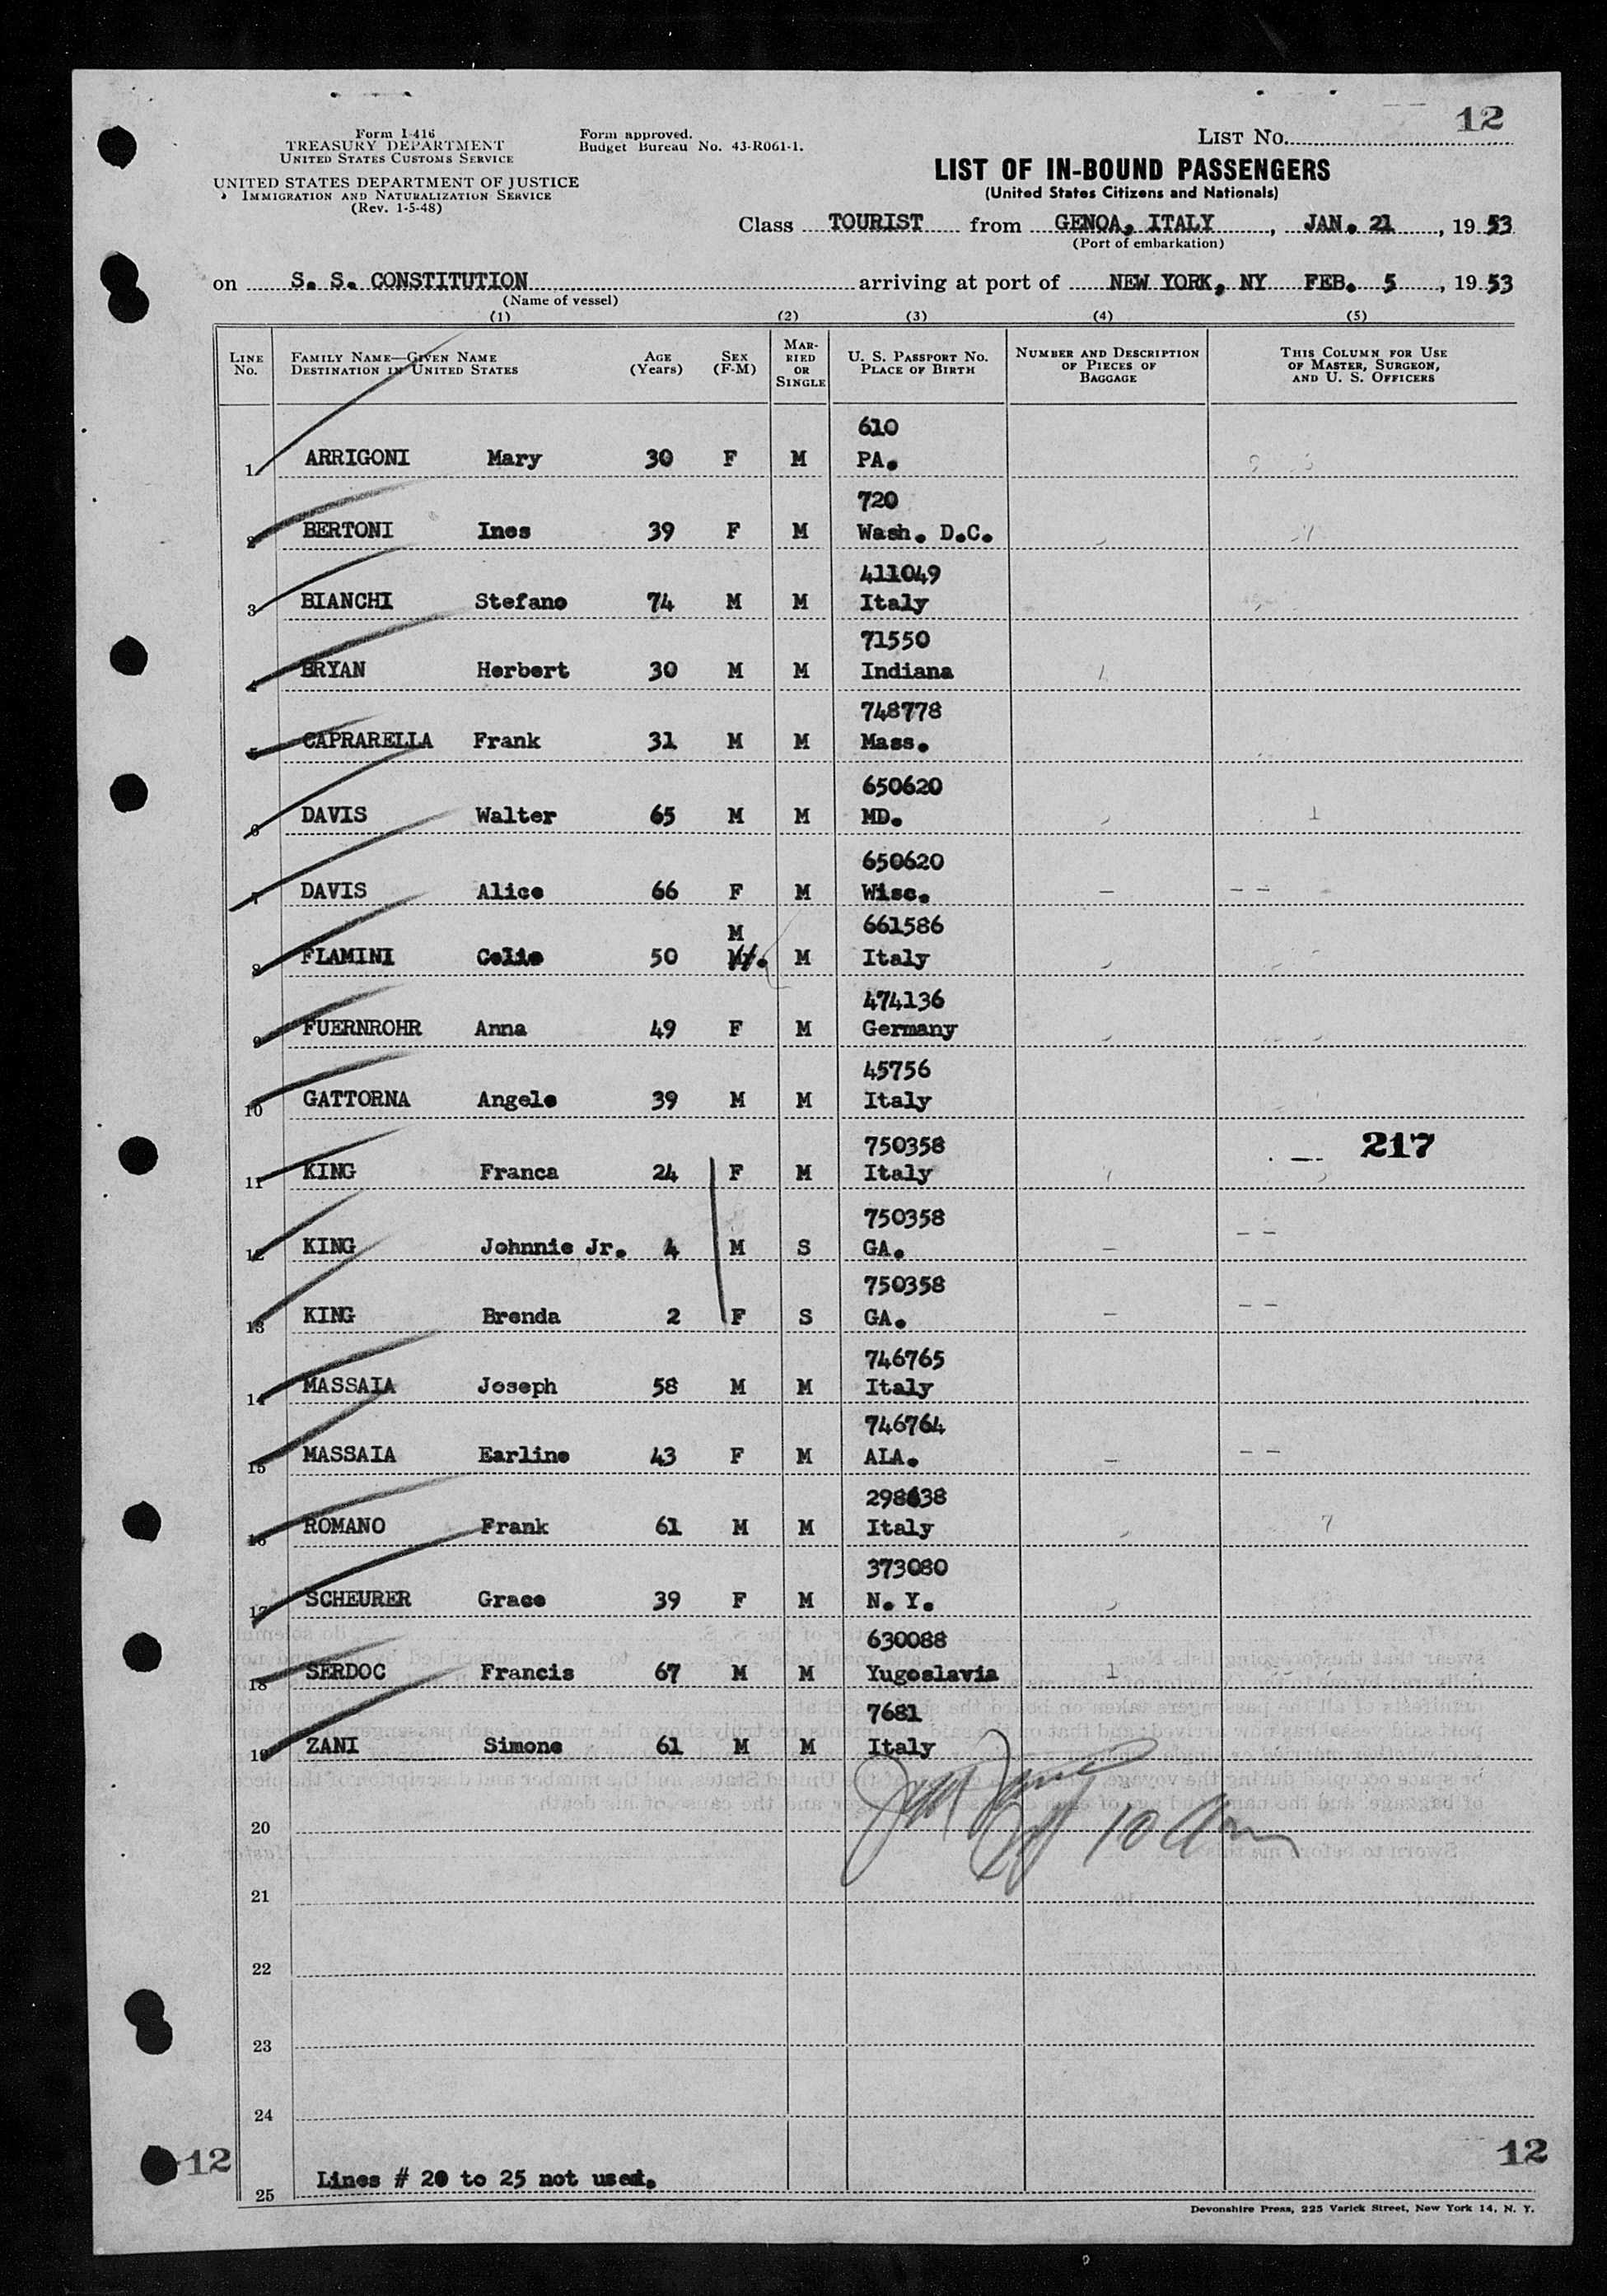 12
Form I-416
TREASURY DEPARTMENT
UNITED STATES CUSTOMS SERVICE
UNITED STATES DEPARTMENT OF JUSTICE
IMMIGRATION AND NATURALIZATION SERVICE
(Rev. 1-5-48)
Form approved.
Budget Bureau No. 43-R061-1.
LIST NO.
LIST OF IN-BOUND PASSENGERS
(United States Citizens and Nationals)
Class TOURIST from GENOA, ITALY, JAN. 21, 1953
(Port of embarkation)
on S. S. CONSTITUTION arriving at port of NEW YORK, NY FEB. 5, 1953
(Name of vessel)
(1) (2) (3) (4) (5)
LINE NO. FAMILY NAME—GIVEN NAME DESTINATION IN UNITED STATES AGE (Years) SEX (F-M) MARRIED OR SINGLE U. S. PASSPORT NO. PLACE OF BIRTH NUMBER AND DESCRIPTION OF PIECES OF BAGGAGE THIS COLUMN FOR USE OF MASTER, SURGEON, AND U. S. OFFICERS
610
1 ARRIGONI Mary 30 F M PA.
720
2 BERTONI Ines 39 F M Wash. D.C.
411049
3 BIANCHI Stefano 74 M M Italy
71550
4 BRYAN Herbert 30 M M Indiana
748778
5 CAPRARELLA Frank 31 M M Mass.
650620
6 DAVIS Walter 65 M M MD.
650620
7 DAVIS Alice 66 F M Wisc.
M 661586
8 FLAMINI Celio 50 M Italy
474136
9 FUERNROHR Anna 49 F M Germany
45756
10 GATTORNA Angelo 39 M M Italy
750358 217
11 KING Franca 24 F M Italy
750358
12 KING Johnnie Jr. 4 M S GA.
750358
13 KING Brenda 2 F S GA.
746765
14 MASSAIA Joseph 58 M M Italy
746764
15 MASSAIA Earline 43 F M ALA.
298638
16 ROMANO Frank 61 M M Italy
373080
17 SCHEURER Grace 39 F M N. Y.
630088
18 SERDOC Francis 67 M M Yugoslavia
7681
19 ZANI Simone 61 M M Italy
10 am
20
21
22
23
24
12 12
Lines # 20 to 25 not used.
25
Devonshire Press, 225 Varick Street, New York 14, N. Y.